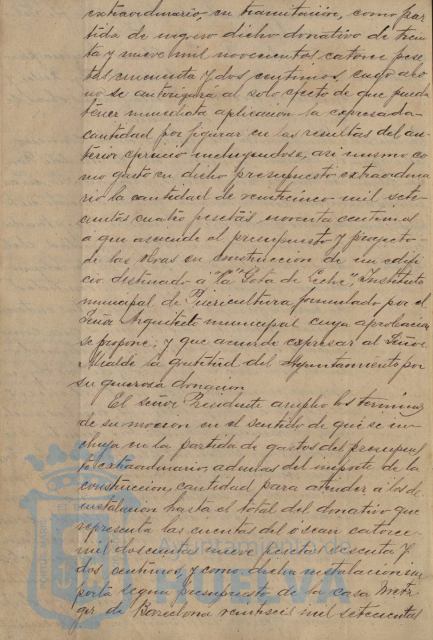 extraordinario, en tramitacion, como par
tida de ingreso dicho donativo de trein
ta y nueve mil novecientas catorce pese
tas cincuenta y dos centimos, cuyo abo
no se autorizará al solo efecto de que pueda
tener inmediata aplicacion la expresada
cantidad por figurar en las resultas del an
terior ejercicio incluyendose, asi mismo co
mo gasto en dicho presupuesto extraordina
rio la cantidad de veinticinco mil sete
cientas cuatro pesetas noventa centimos
a que asciende el presupuesto y proyecto
de las obras en construccion de un edifi
cio destinado a "la "Gota de Leche", Instituto
municipal de Puericultura formulado por el
Señor Arquitecto municipal cuya aprobacion
se propone; y que acuerde expresar al Señor
Alcalde la gratitud del Ayuntamiento por
su generosa donacion
El señor Presidente amplió los terminos
de su mocion en el sentido de que se in
cluya en la partida de gastos del presupues
to extraordinario, ademas del importe de la
construccion, cantidad para atender a los de
instalacion hasta el total del donativo que
representa las cuentas del
mil doscientas nueve pesetas sesenta y
dos centimos, y como dicha instalacion im
porta segun presupuesto de la casa Metz
ger de Barcelona veintiseis mil setecientas
Ayuntamiento de
HUELVA